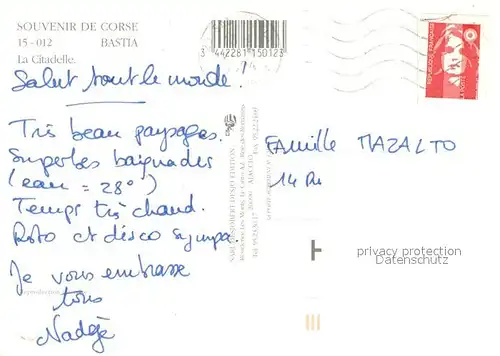 SOUVENIR DE CORSE
15 - 012 BASTIA
La Citadelle.
3 442281 150123
RÉPUBLIQUE FRANÇAISE
Salut tout le monde.
Très beau paysages.
Superbes baignades
(eau = 28°)
Temps très chaud.
Resto et disco sympa.
Je vous embrasse
tous
Nadège
FAMille MAZALTO
14 Ru
privacy protection
Datenschutz